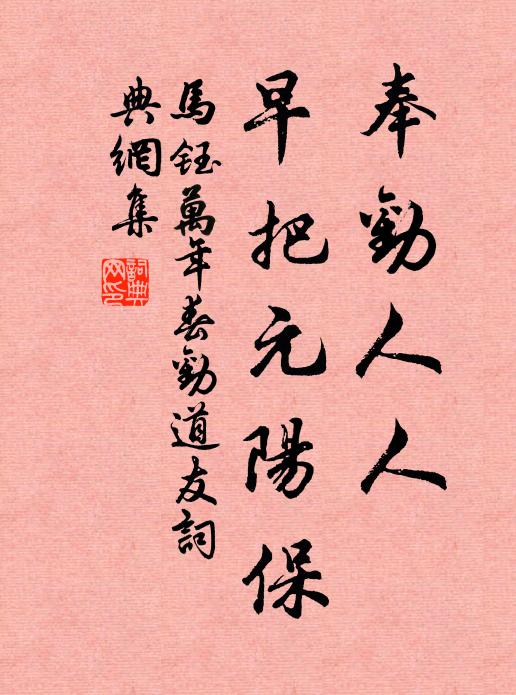 奉勸人人
早把元陽保
馬鈺萬年春勸道友詞
典網集
詞典
网印